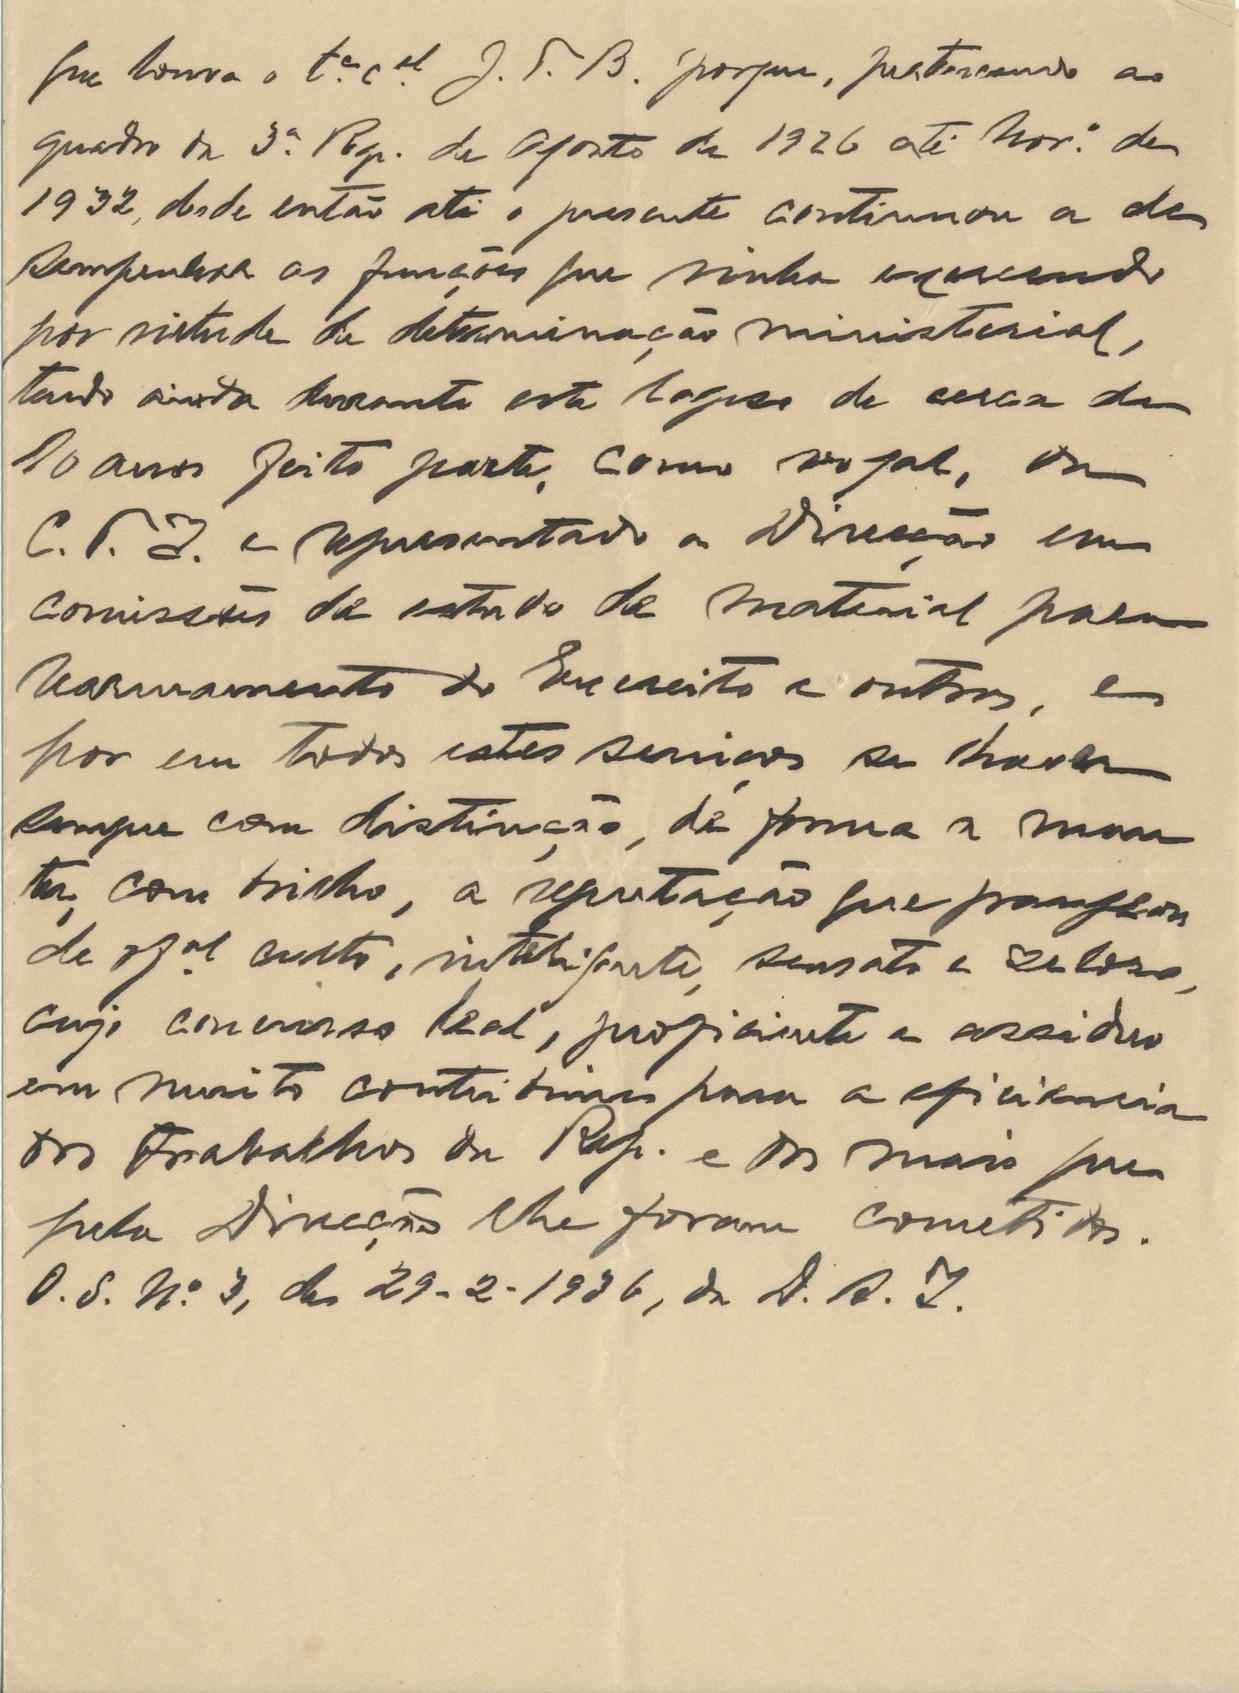 que louva o t.e c.el J. T. B. porque, pertencendo ao
quadro da 3.ª Rep. de Agosto de 1926 até Nov.º de
1932, desde então até o presente continuou a de
sempenhar as funções que vinha exercendo
por virtude de determinação ministerial,
tendo ainda durante este lapso de cerca de
10 anos feito parte, como vogal, da
C. T. I. e representado a Direcção em
comissões de estudo de material para
rearmamento do Exercito e outros, e
por em todos estes serviços se haver
sempre com distinção, de forma a man
ter, com brilho, a reputação que grangeou
de of.al culto, inteligente, sensato e zeloso,
cujo concurso leal, proficiente e assiduo
em muito contribuiu para a eficiencia
dos trabalhos da Rep. e dos mais que
pela Direcção lhe foram cometidos.
O. S. N.º 3, de 29-2-1936, da D. A. I.